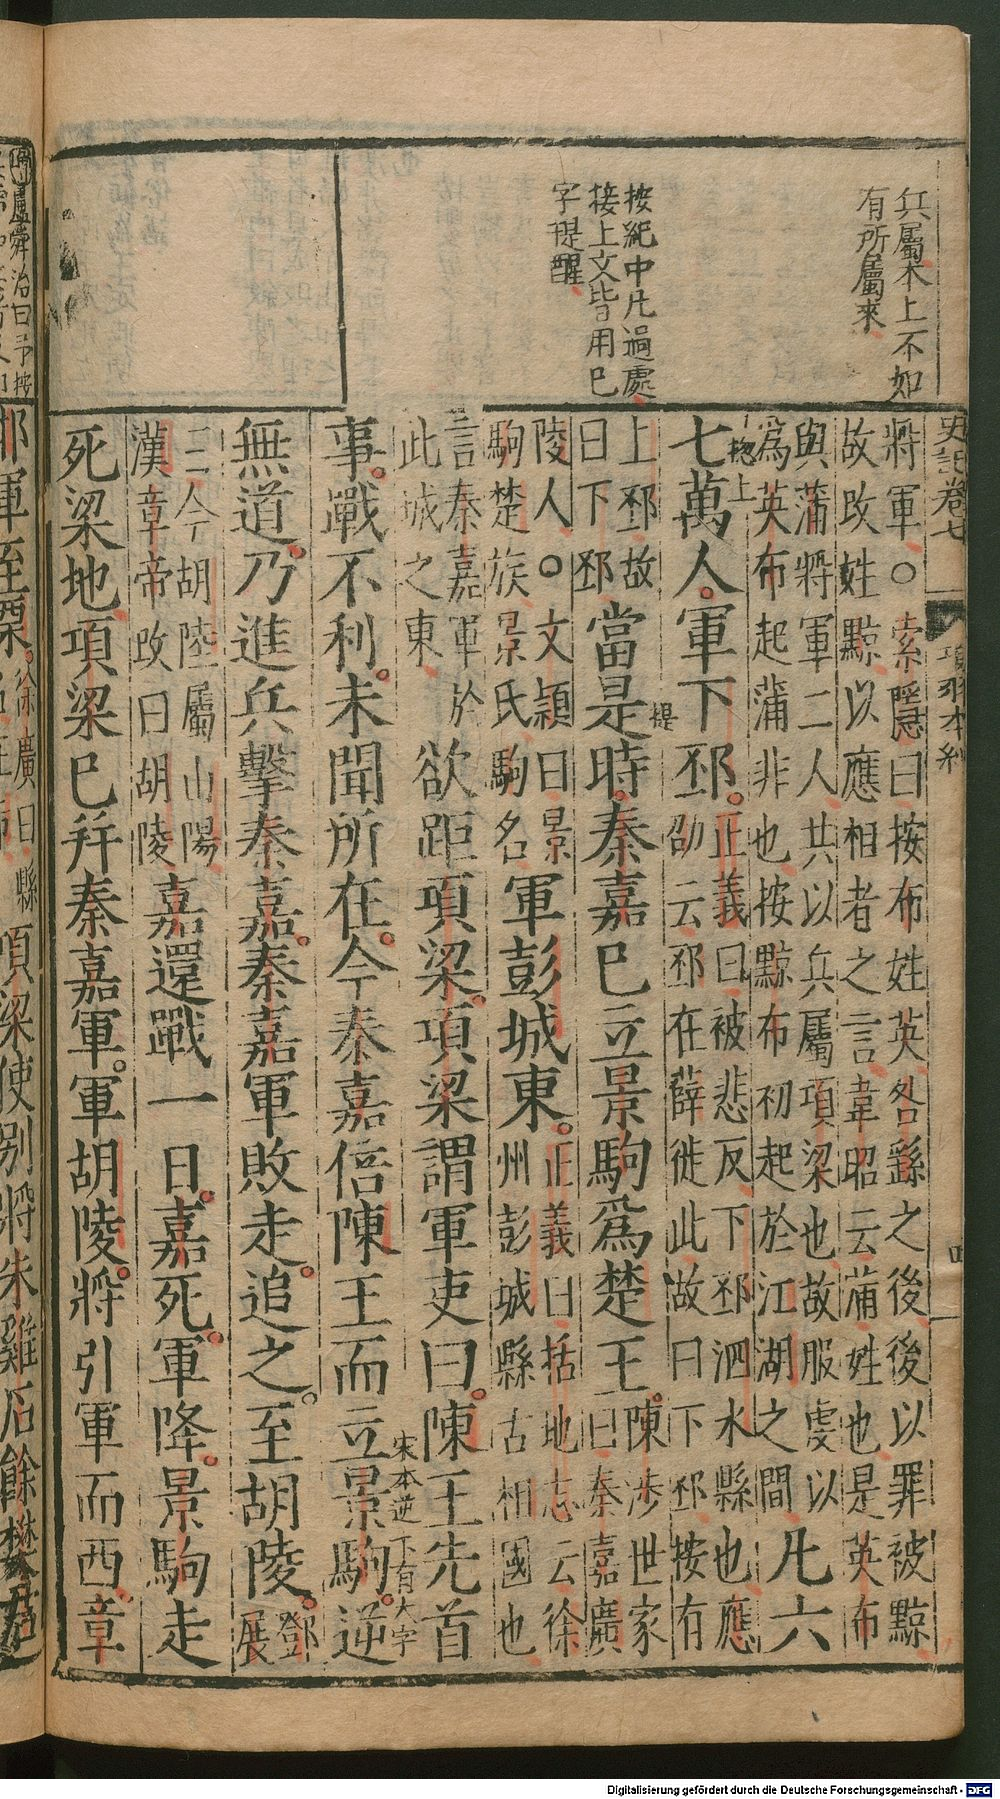 兵屬未上不如
有所屬來
按紀中凡過處
接上文皆用巳
字提醒
史記卷七
項羽本紀
四
將軍○索隱曰按布姓英咎繇之後後以罪被黥
故改姓黥以應相者之言韋昭云蒲姓也是英布
與蒲將軍二人共以兵屬項梁也故服虔以
為英布起蒲非也按黥布初起於江湖之間
凡六
七萬人軍下邳
總上
正義曰被悲反下邳泗水縣也應
劭云邳在薛徙此故曰下邳按有
上邳故
曰下邳
當是時秦嘉巳立景駒爲楚王
提
陳涉世家
曰秦嘉廣
陵人○文穎曰景
駒楚族景氏駒名
軍彭城東
正義曰括地志云徐
州彭城縣古相國也
言秦嘉軍於
此城之東
欲距項梁項梁謂軍吏曰陳王先首
事戰不利未聞所在今秦嘉倍陳王而立景駒逆
宋本逆下有大字
無道乃進兵擊秦嘉秦嘉軍敗走追之至胡陵
鄧
展
二今胡陸屬山陽
漢章帝改曰胡陵
嘉還戰一日嘉死軍降景駒走
死梁地項梁巳并秦嘉軍軍胡陵將引軍而西章
盧舜治曰予按
邯軍至栗
徐廣曰縣
項梁使別將朱雞石餘樊君
Digitalisierung gefördert durch die Deutsche Forschungsgemeinschaft - DFG